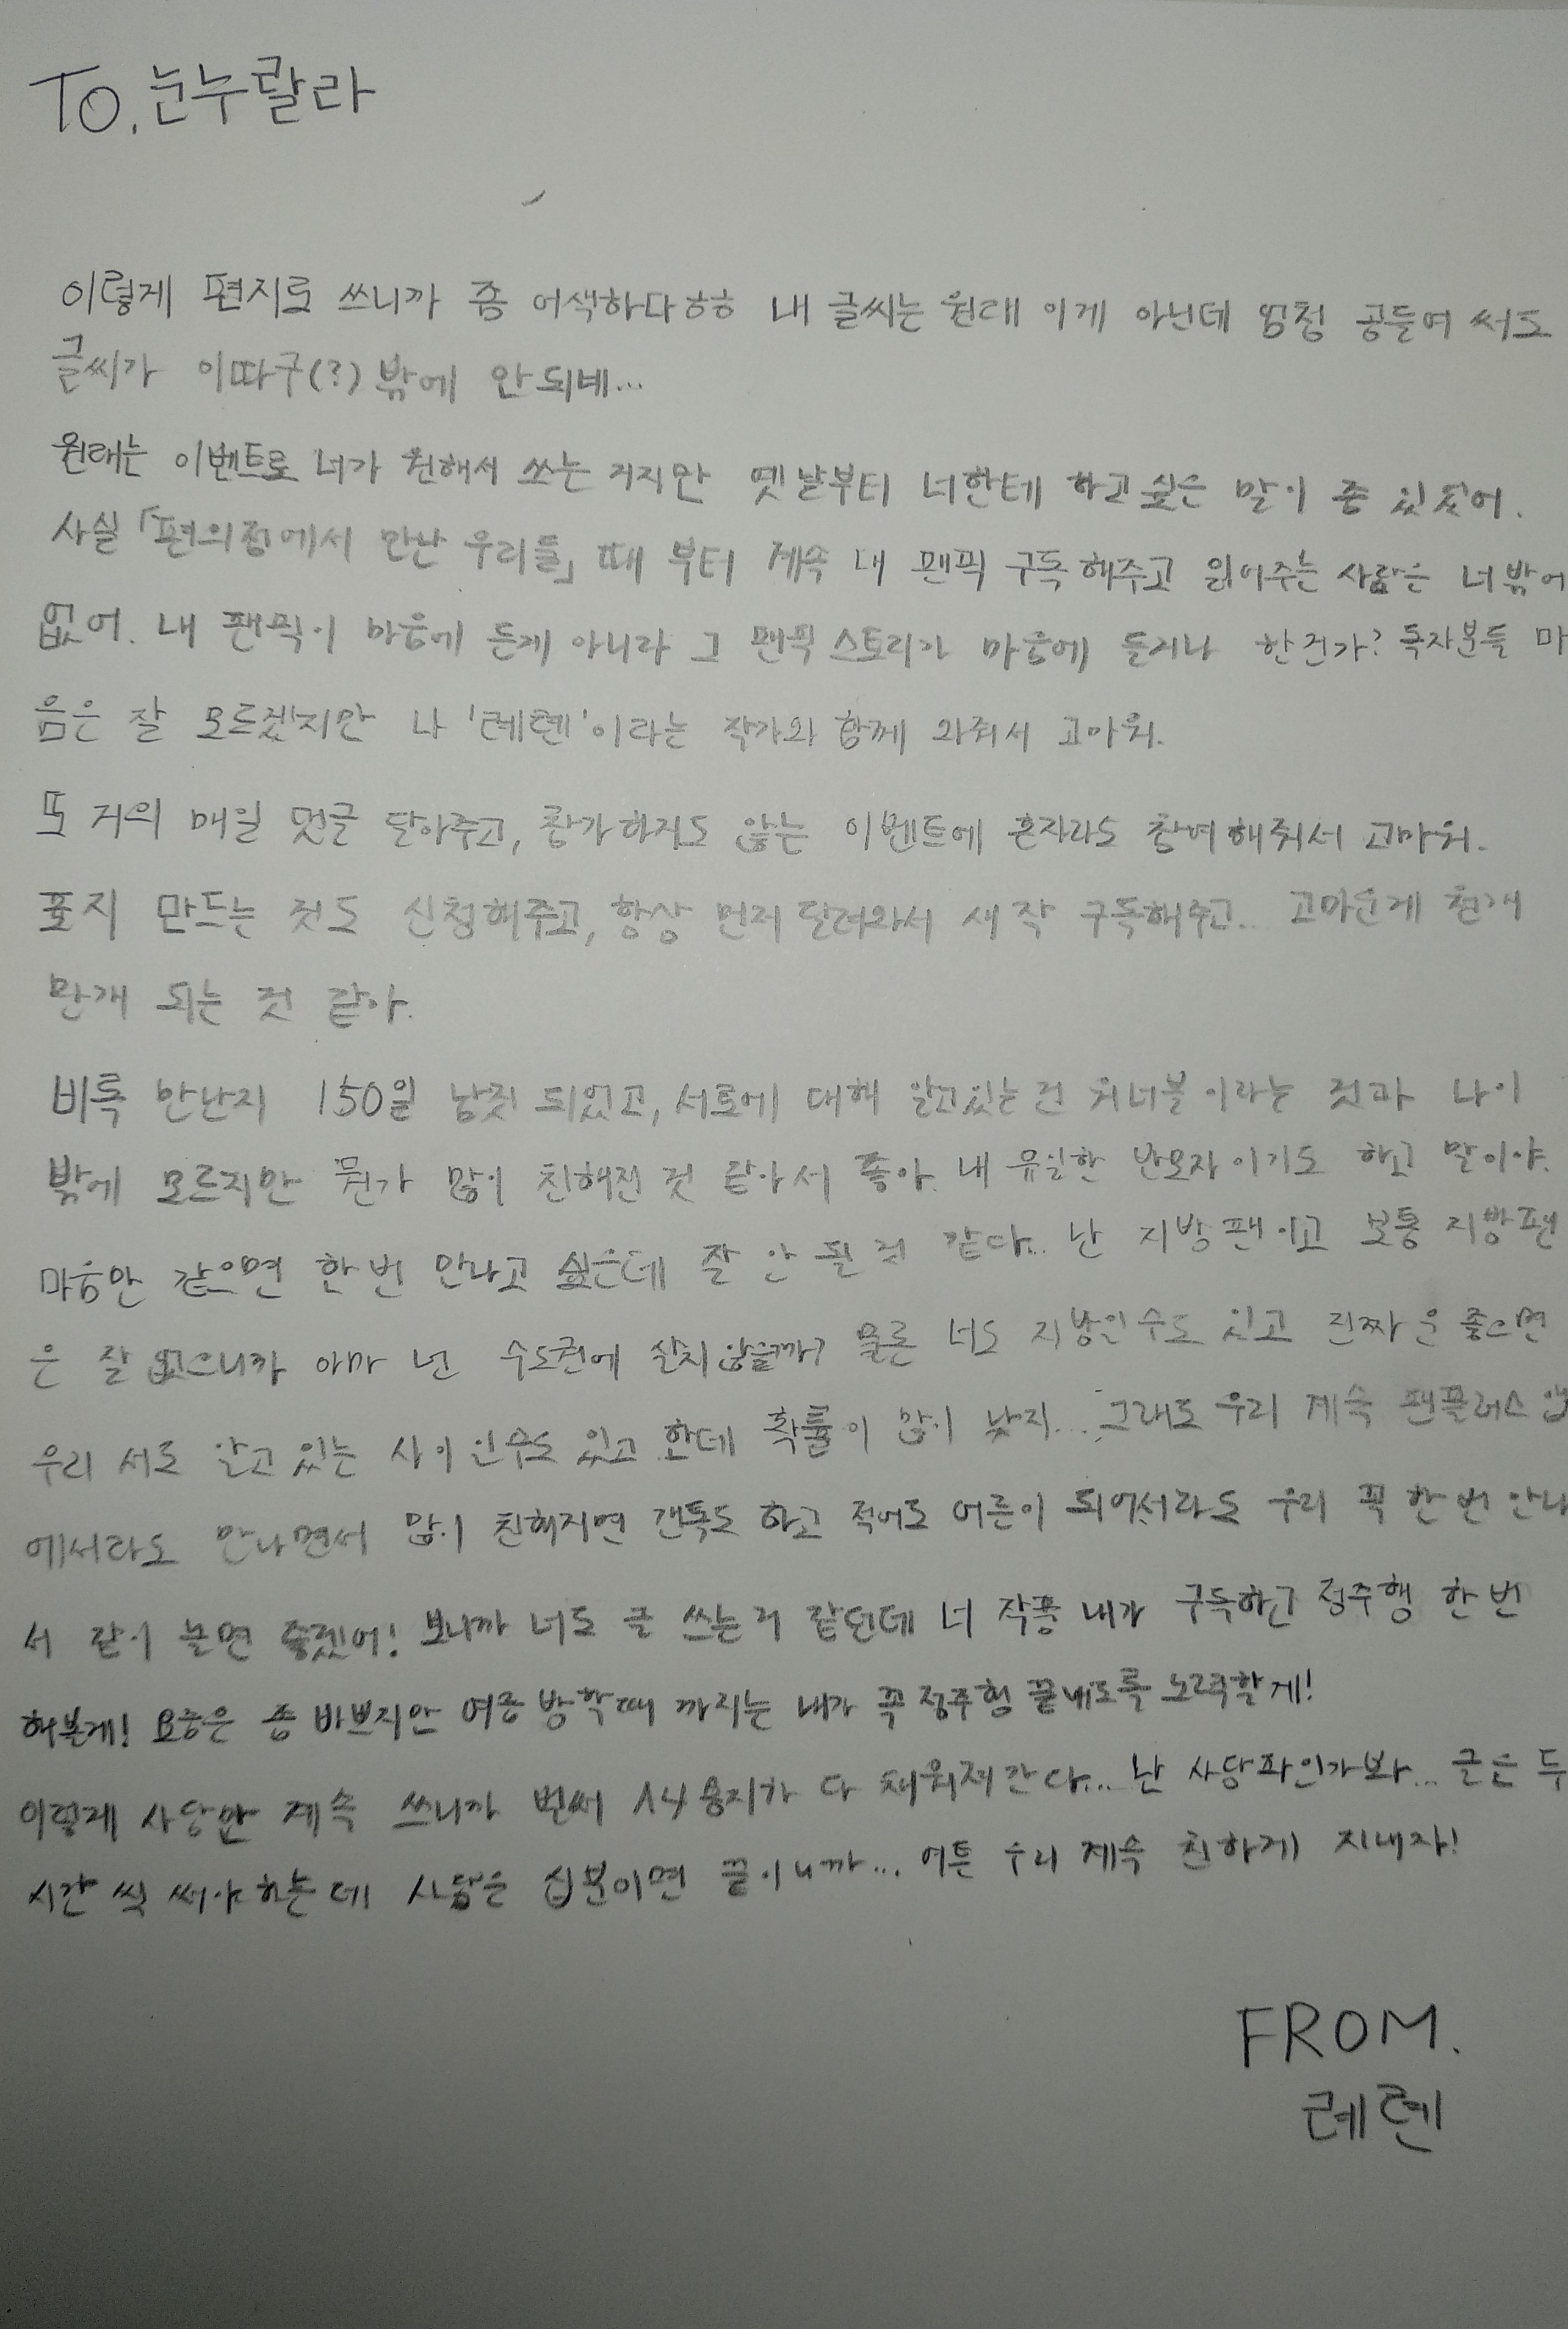 TO. 눈누랄라
이렇게 편지로 쓰니까 좀 어색하다ㅎㅎ 내 글씨는 원래 이게 아닌데 엄청 공들여 써도
글씨가 이따구(?) 밖에 안되네...
원래는 이벤트로 너가 원해서 쓰는 거지만 옛날부터 너한테 하고싶은 말이 좀 있었어.
사실 「편의점에서 만난 우리들」 때 부터 계속 내 팬픽 구독해주고 읽어주는 사람은 너밖에
없어. 내 팬픽이 마음에 든게 아니라 그 팬픽 스토리가 마음에 들거나 한건가? 독자분들 마
음은 잘 모르겠지만 나 '레렌'이라는 작가와 함께 와줘서 고마워.
또 거의 매일 댓글 달아주고, 참가하지도 않는 이벤트에 혼자라도 참여해줘서 고마워.
표지 만드는 것도 신청해주고, 항상 먼저 달려와서 새작 구독해주고... 고마운게 천개
만개 되는 것 같아.
비록 만난지 150일 남짓 되었고, 서로에 대해 알고있는 건 워너블이라는 것과 나이
밖에 모르지만 뭔가 많이 친해진 것 같아서 좋아. 내 유일한 반모자이기도 하고 말이야.
마음만 같으면 한번 만나고 싶은데 잘 안 될 것 같다... 난 지방팬이고 보통 지방팬
은 잘 없으니까 아마 넌 수도권에 살지않을까? 물론 너도 지방일수도 있고 진짜 운 좋으면
우리 서로 알고 있는 사이 일수도 있고 한데 확률이 많이 낮지... 그래도 우리 계속 팬플러스 앱
에서라도 만나면서 많이 친해지면 갠톡도 하고 적어도 어른이 되어서라도 우리 꼭 한 번 만나
서 같이 놀면 좋겠어! 보니까 너도 글 쓰는거 같던데 너 작품 내가 구독하고 정주행 한번
해볼게! 요즘은 좀 바쁘지만 여름 방학때 까지는 내가 꼭 정주행 끝내도록 노력할게!
이렇게 사담만 계속 쓰니까 벌써 A4 용지가 다 채워져간다... 난 사담파인가봐... 글은 두
시간 씩 써야 하는데 사담은 십분이면 끝이니까... 여튼 우리 계속 친하게 지내자!
FROM.
레렌